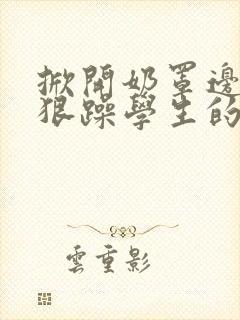 掀開奶罩邊
狠躁學生的
雲重影